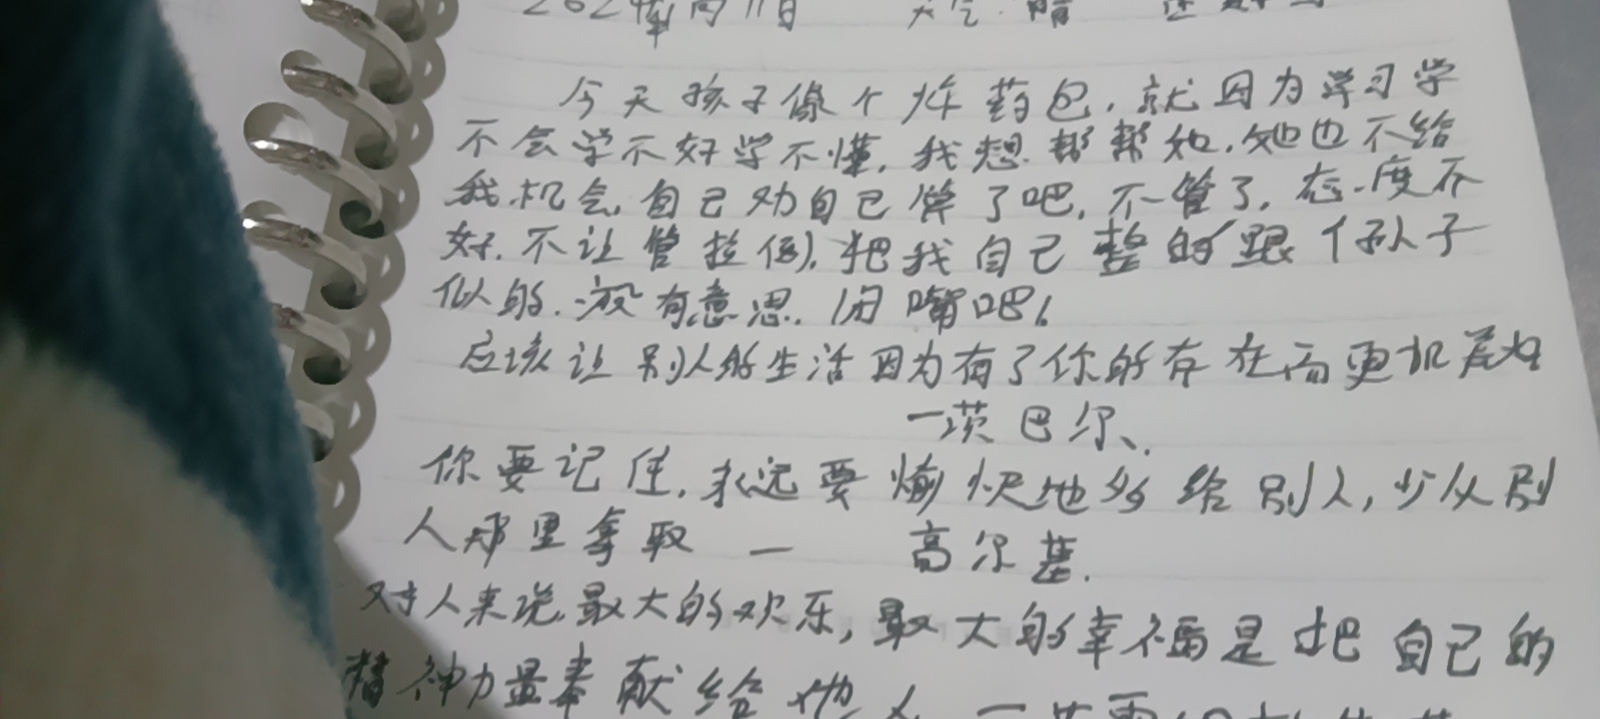 2024年 月11日 天气:晴
今天孩子像个炸药包,就因为学习学
不会学不好学不懂,我想帮帮她,她也不给
我机会,自己劝自己算了吧,不管了,态度不
好,不让管拉倒,把我自己整的跟个孙子
似的,没有意思,闭嘴吧!
应该让别人的生活因为有了你的存在而更加美好
一茨巴尔、
你要记住,永远要愉快地多给别人,少从别
人那里拿取 — 高尔基.
对人来说最大的欢乐,最大的幸福是把自己的
精神力量奉献给他人